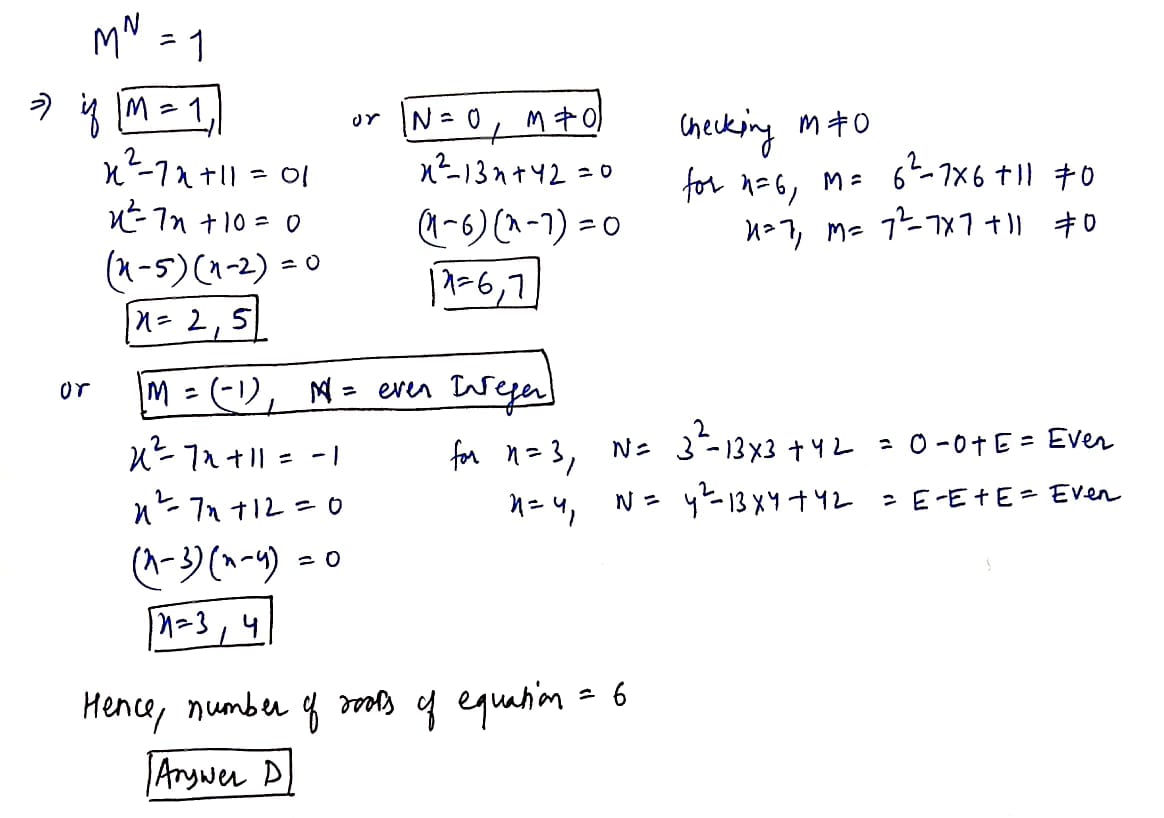 M^N = 1
⇒ if M = 1,
x² - 7x + 11 = 01
x² - 7x + 10 = 0
(x-5)(x-2) = 0
x = 2, 5
or N = 0, M ≠ 0
x² - 13x + 42 = 0
(x-6)(x-7) = 0
x = 6, 7
Checking M ≠ 0
for x=6, M = 6² - 7×6 + 11 ≠ 0
x=7, M = 7² - 7×7 + 11 ≠ 0
or M = (-1), N = even Integer
x² - 7x + 11 = -1
x² - 7x + 12 = 0
(x-3)(x-4) = 0
x = 3, 4
for x=3, N = 3² - 13×3 + 42 = O - O + E = Even
x=4, N = 4² - 13×4 + 42 = E - E + E = Even
Hence, number of roots of equation = 6
Answer D